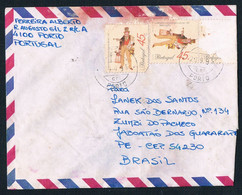 FERREIRA ALBERTO
R. AUGUSTO GIL
4100 PORTO
PORTUGAL
45
Portugal
45
PORTO
PARA
JANEK DOS SANTOS
RUA SÃO BERNARDO, Nº 134
ZUMBI DO PACHECO
JABOATÃO DOS GUARARAPES
PE - CEP 54230
BRASIL